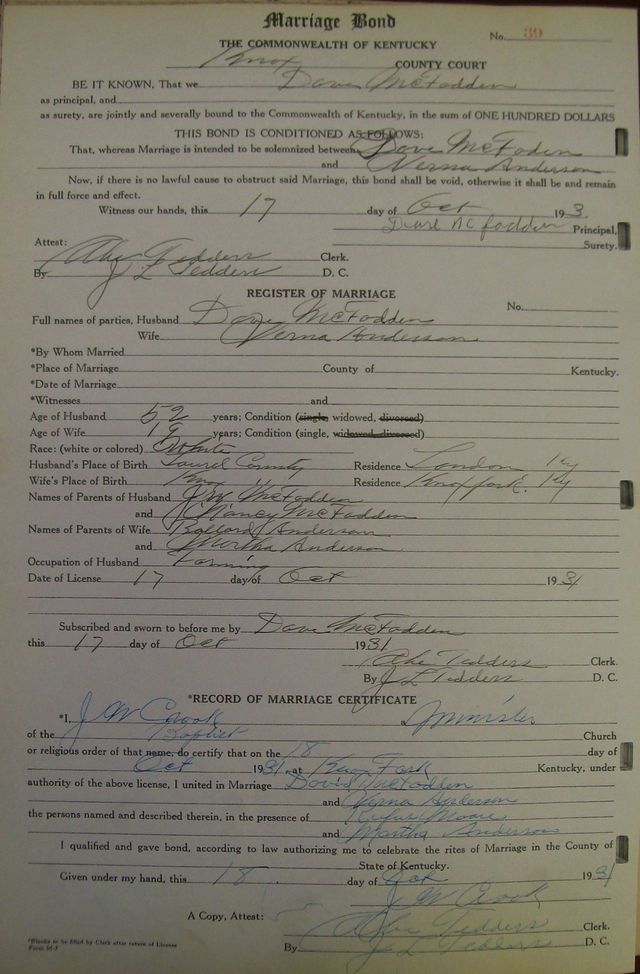 Marriage Bond
No. 39
THE COMMONWEALTH OF KENTUCKY
Knox COUNTY COURT
BE IT KNOWN, That we Dave McFadden
as principal, and
as surety, are jointly and severally bound to the Commonwealth of Kentucky, in the sum of ONE HUNDRED DOLLARS
THIS BOND IS CONDITIONED AS FOLLOWS:
That, whereas Marriage is intended to be solemnized between Dave McFaden
and Verna Anderson
Now, if there is no lawful cause to obstruct said Marriage, this bond shall be void, otherwise it shall be and remain
in full force and effect.
Witness our hands, this 17 day of Oct 193
Principal,
Surety.
Attest:
Abe Tedders Clerk.
By J L Tedders D. C.
REGISTER OF MARRIAGE
No.
Full names of parties, Husband Dave McFadden
Wife Verna Anderson
*By Whom Married
*Place of Marriage County of Kentucky.
*Date of Marriage
*Witnesses and
Age of Husband 52 years; Condition (single, widowed, divorced)
Age of Wife 19 years; Condition (single, widowed, divorced)
Race: (white or colored) White
Husband's Place of Birth Laurel County Residence London Ky
Wife's Place of Birth Knox " Residence Knox fork. Ky
Names of Parents of Husband J W McFadden
and Nancy McFadden
Names of Parents of Wife Ballard Anderson
and Martha Anderson
Occupation of Husband Farming
Date of License 17 day of Oct 1931
Subscribed and sworn to before me by Dave McFadden
this 17 day of Oct 1931
Abe Tedders Clerk.
By J L Tedders D. C.
*RECORD OF MARRIAGE CERTIFICATE
*I, J W Crook a Minister
of the Baptist Church
or religious order of that name, do certify that on the 18 day of
Oct 1931, at Knox Fork Kentucky, under
authority of the above license, I united in Marriage David McFadden
and Verna Anderson
the persons named and described therein, in the presence of Rufus Moore
and Martha Anderson
I qualified and gave bond, according to law authorizing me to celebrate the rites of Marriage in the County of
State of Kentucky.
Given under my hand, this 18 day of Oct 1931
J W Crook
A Copy, Attest: Abe Tedders Clerk.
By J L Tedders D. C.
*Blanks to be filled by Clerk after return of License